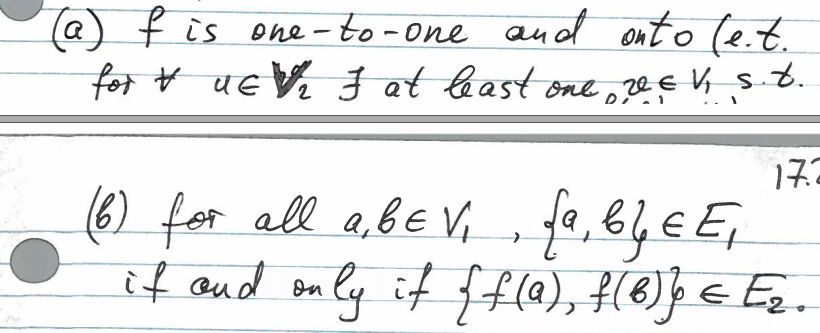 (a) f is one-to-one and onto (e.t.
for ∀ u ∈ V₂ ∃ at least one x ∈ V₁ s.t.
17.2
(b) for all a, b ∈ V₁, {a, b} ∈ E₁
if and only if {f(a), f(b)} ∈ E₂.